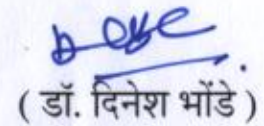 ( डॉ. दिनेश भोंडे )